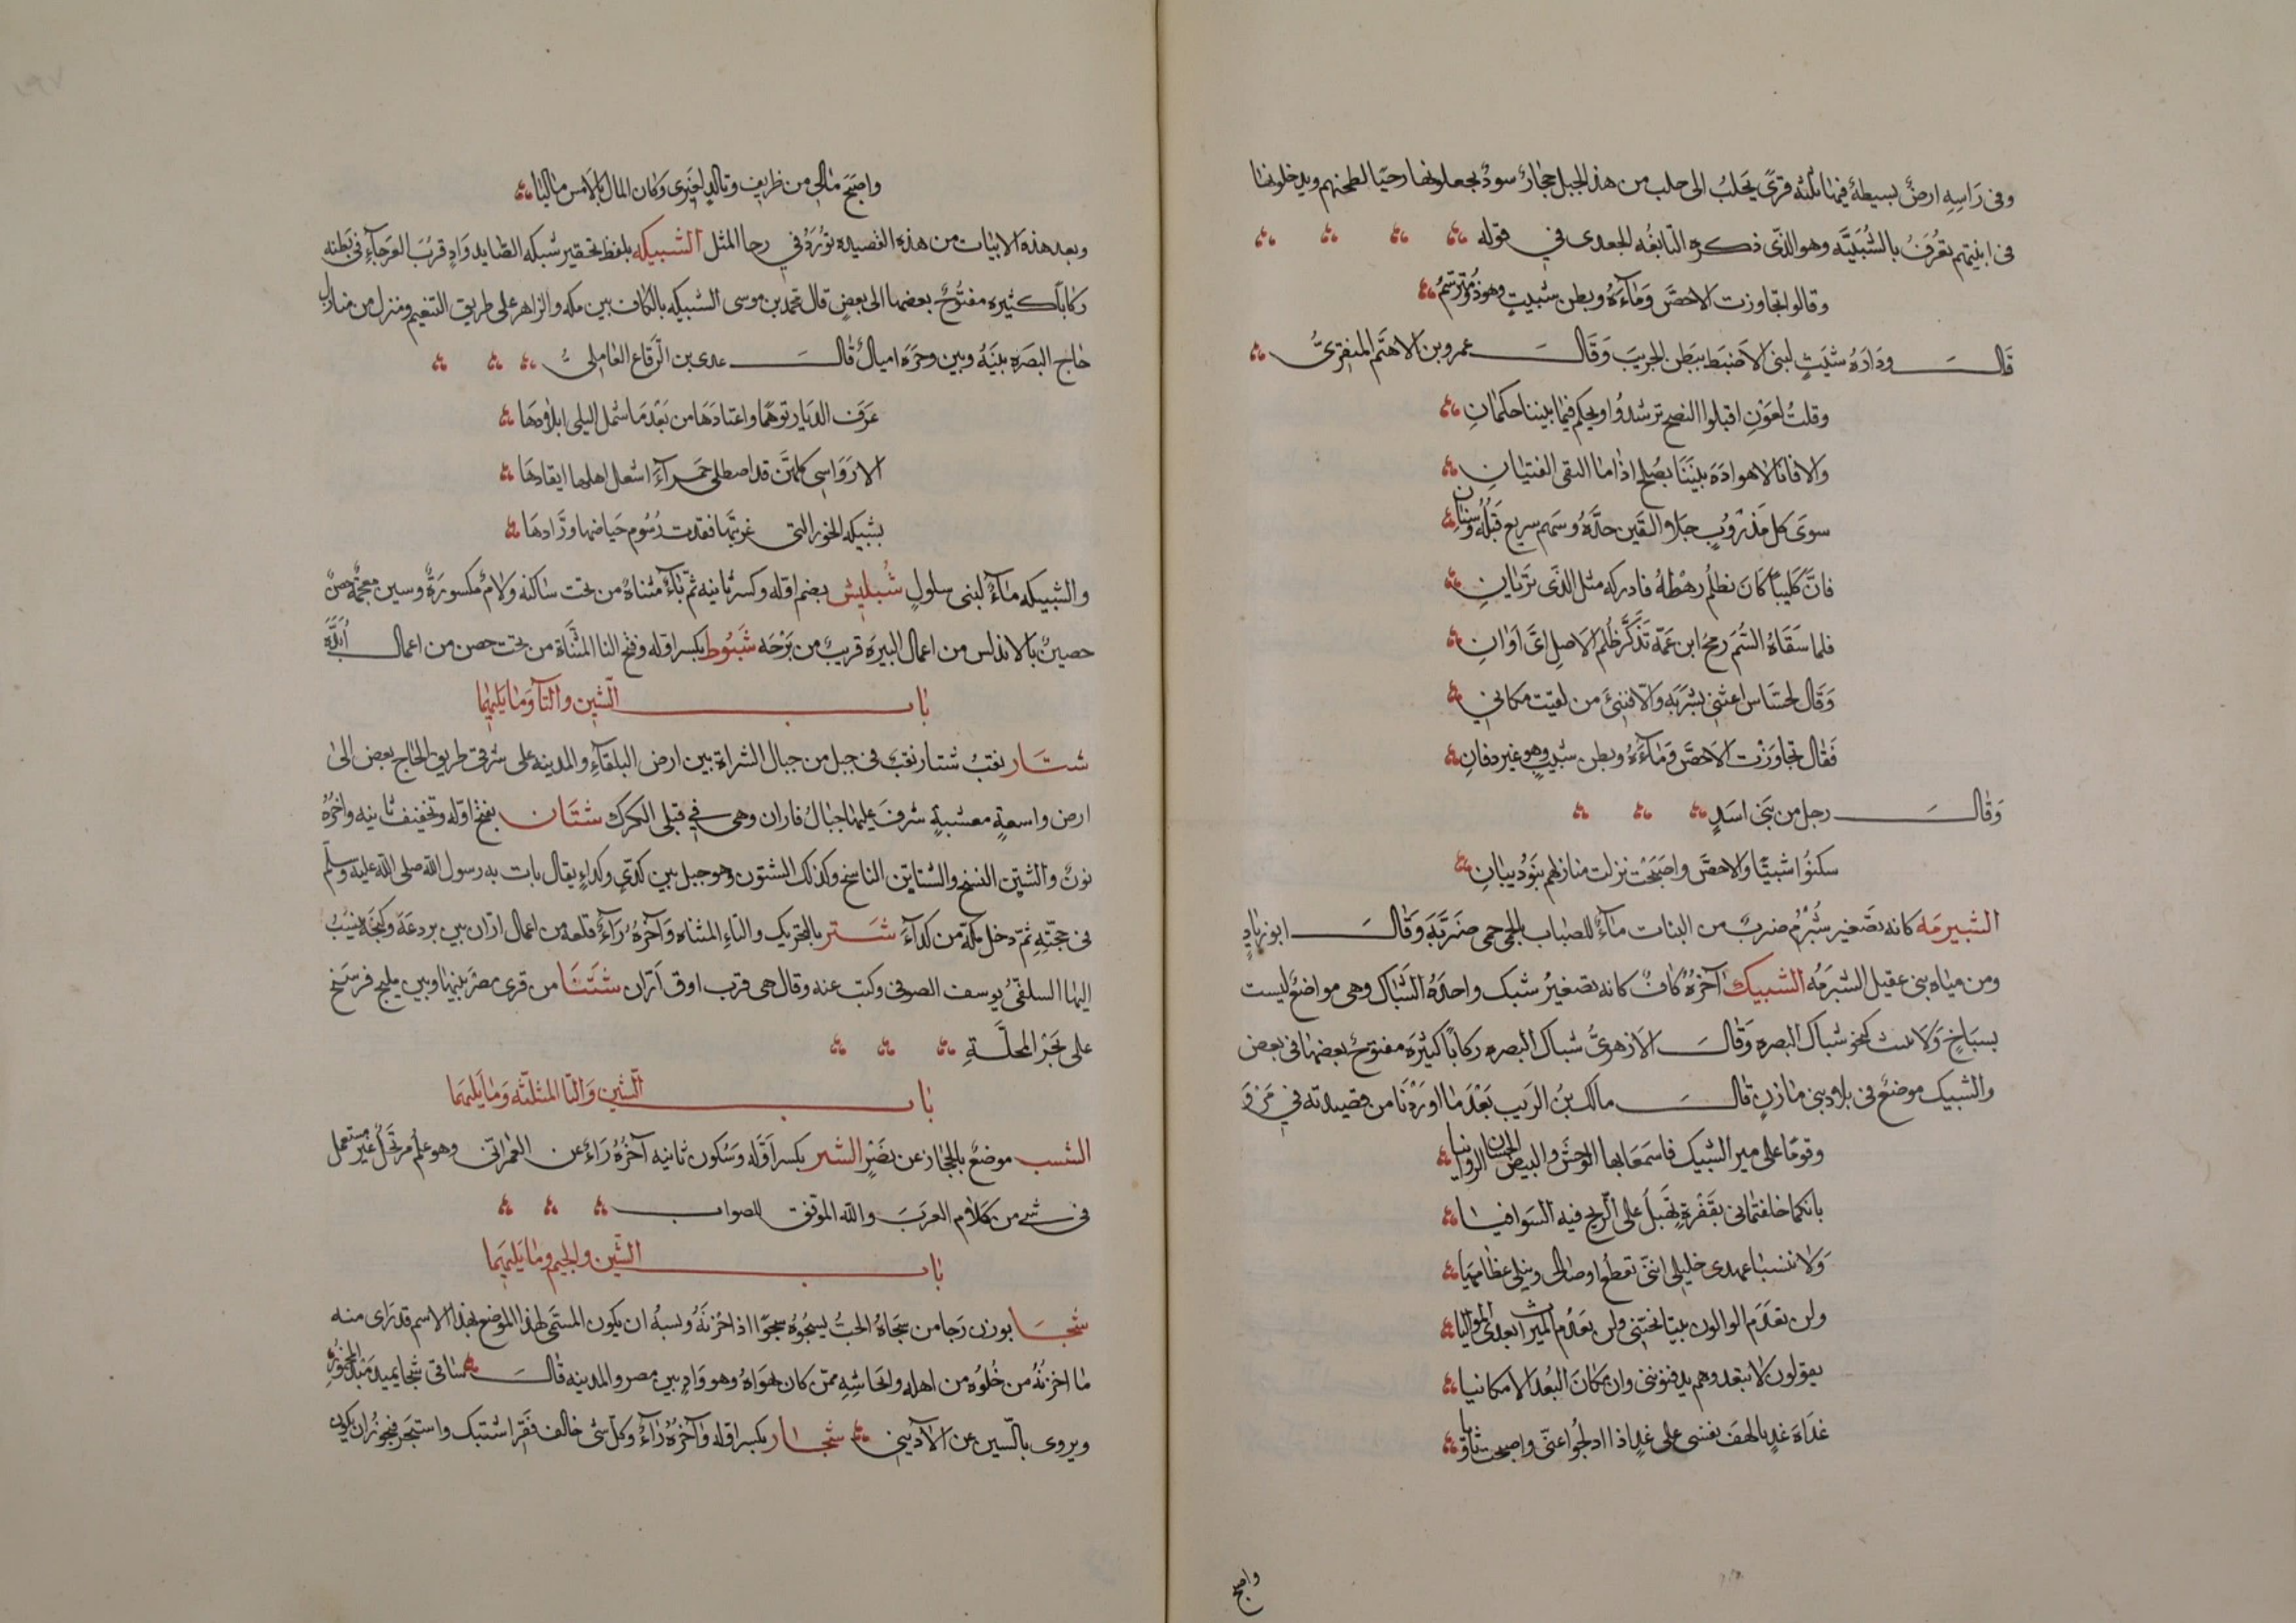 وفى رَاسِهِ ارضٌ بسيطةٌ فيها ثلثه قرىً يَحلبُ الى حلب من هذا الجبل حجارٌ سودٌ يجعلونها رحيًا لطحنهم ويدخلونها
فى ابنيتهم تعُرَفُ بالشُبَيَّه وهو الذّى ذكره النّابغُه الجعدى في قوله
وقالوا تجاوزت الاحصَّ وَمَآءَهُ وبطن شبيثٍ وهو ذو مترسّمُ
قَال ودَادَهُ شبَيثٍ لبنى الاَضبَط ببَطن الجريبَ وَقَال عمرو بن الاهتَم المنقرىُّ
وقلتُ لعَوْنٍ اقبلوا النصح ترشدُوا ويحكم فيما بيننا حكمانِ
والا فانا لا هوادَةَ بيَننَا بصُلح اذا ما التقى الفتيانِ
سوَى كل مَذْرُوبٍ جلا القَين حدَّهُ وسَهم سريع قتلُهُ وسنانِ
فانَّ كليبًا كَانَ يظلُم رهْطَهُ فادركه مثل الذَى تَريانِ
فلما سَقَاهُ السُّمَ رمحُ ابن عَمّه تَذَكَّرَ ظُلمَ الاَصِل اىَّ اَوَانِ
وَقَال لحسَّاس اغثنى بشَربَةٍ وَالّا فنبىَّ من لقيَت مكانى
فَقَال تجاوَزْت الاَحصَّ وَمَآءَهُ وبطن شبيثٍ وهو غير دفانِ
وَقَال رجل من بَنى اسَدٍ
سكنُوا شبيثًا والاحصَّ واصبَحَت نزلت منازلهم بَنوُ ذبيانِ
الشبيرمَه كانه تصَغير شُبْرُم ضربٌ من النبات مآءٌ للضباب بالحمى حمى ضَرَيَّةَ وَقَال ابو زيادٍ
ومن ميَاه بنى عقيل الشُبَرمَه الشبيك آخرُهُ كافٌ كانه تصغيرُ شبك واحدَهُ الشَبَاك وهى مواضع ليست
بسبَاخٍ وَلَا تنبت كنحو شباك البصره وَقَال الاَزهرىُّ شباك البصره ركابًا كثيرَه مفتوحٌ بعضها فى بعض
والشبيك موضعٌ فى بلاد بنى مَازنٍ قَال مالك بنُ الريب بَعْدَ مَا اورَدْنَا من قصيدته في مَرْوَ
وقومَا على بير الشبيك فاسمَعَا بها الوحشَ والبيضَ الحسَان الروانيا
بانكما خلفتمانى بقَفْرةٍ تَهيلُ على الريح فيه السَوافيا
وَلا تنسيا عهدى خليلى انّنى تقطعُ اوصالى وتبلى عظَاميا
ولن يعَدَم الوالون بيتا يجنّنى ولن يعَدُم الميراث بعدى المواليا
يقولون لا تبعد وهم يدفنوننى واين مكانَ البُعد الا مكانيا
غداة غدٍ يالهفَ نفسى على غدٍ اذا ادلجُوا عنى واصبحت ثاويا
واصبح
واصبَحَ مَالى من طَريفٍ وتالدٍ لغَيرى وكان المال بالاَمس ماليا
وبعد هذه الابيات من هذه القصيده توُرَدُ في رحا المثل الشبيكه بلفظ تحقير شبكه الصَّايد وَادٍ قربَ العَرجآءِ فى بَطنه
ركابًا كثيره مفتُوحٌ بعضها الى بعضٍ قال محمّد بن موسى الشبيكه بالكاف بين مكه والزاهر على طريق التنعيم ومنزل من منازل
حاج البصَره بينَهُ وبين وجرَة اميالٌ قَال عدى بن الرَّقاع العَامِلىُّ
عَرَف الديار توهّمًا واعتادَهَا من بَعْد مَا شمل البلى ابلادهَا
الارَوَاسى كلهنَّ قد اصطلى حَمرآءَ اشعل اهلها ايقادهَا
بشبيكه الحور التى غربيّها فقدت رُسُوم حيَاضها وُرَّادهَا
والشبيكه مآءٌ لبنى سلولٍ شُبليش بضم اوّله وكسر ثانيه ثمّ يآءٌ مثناةٌ من تحت ساكنه ولامٌ مكسورَةٌ وسين معجمَة حصنٌ
حصينٌ بالاندلس من اعمال البيرَة قريبٌ من برْجَه شَبَيُوط بكسر اوّله وفتح النا المثنَّاة من تحت حصن من اعمال اُبَّدَة
بَاب الشّين والتآ وَمَا يَليهما
شتَار نقبُ شتار نقبٌ فى جبل من جبال الشراة بين ارض البلقَآءِ والمدينه على شرقى طريق الحَاج يفضى الى
ارض واسعةٍ معشبةٍ يشرفَ عليهَا جبالُ فاران وهى في قبلى الكرك شتَان بفتح اوّله وتخفيف ثانيه واخرُهُ
نونٌ والشتِن النسَج والشتايِن الناسخ وكذلك الشتون وهو جبل بين كدىٍّ وكداءٍ يقال بات به رسول الله صلى الله عليه وسلّم
فى حجّتِهِ ثمّ دخل مكّة من كدآءَ شَتر بالتحريك والتاءِ المثناه وَآخرُهُ رَآءٌ قلعه من اعمال ارّان بين بردعَة وكنجَة ينسَبُ
اليها السلفىُّ يوسف الصوفى وكتب عنه وقال هى قرب اوق اَرّان شَتَنَا من قرى مصْرَ بينها وبين مليج فرسَخ
على بحَر المحلَّةِ
بَاب الشّين وَالثّا المثلثّه وَمَا يَليهمَا
الشب موضعٌ بالحجَاز عن نصَرٍ الشبر بكسر اَوَّله وَسُكون ثانيه آخرُهُ رَاءٌ عن العمرانّى وهو علمٌ مرتَجَلٌ غير مستعمل
فى شى من كَلام العَرَبَ والله الموَفق للصواب
بَاب الشّين والجيم ومَا يَليهما
شَجَا بوزن رَجا من شجَاهُ الحبُّ يشجُوهُ شجوًا اذا احْزنَهُ وَيُشبهُ ان يكون المسَمّى لهذا الموضع بهذا الاسم قد رَاى منه
مَا احزنُهُ من خُلُوه من اهله وايحاشِهِ ممّن كان يهوَاهُ وهو وَادٍ بين مصر والمدينه قَال سَاقى شجَا يميد مَيدَ المخمُورِ
ويروى بالسّين عن الآدِيبى شجَار بكسر اوّله وَآخرُهُ رَآءٌ وكل شى خالف فَقَد اشتبك واستجَر فيجوُز ان يكون